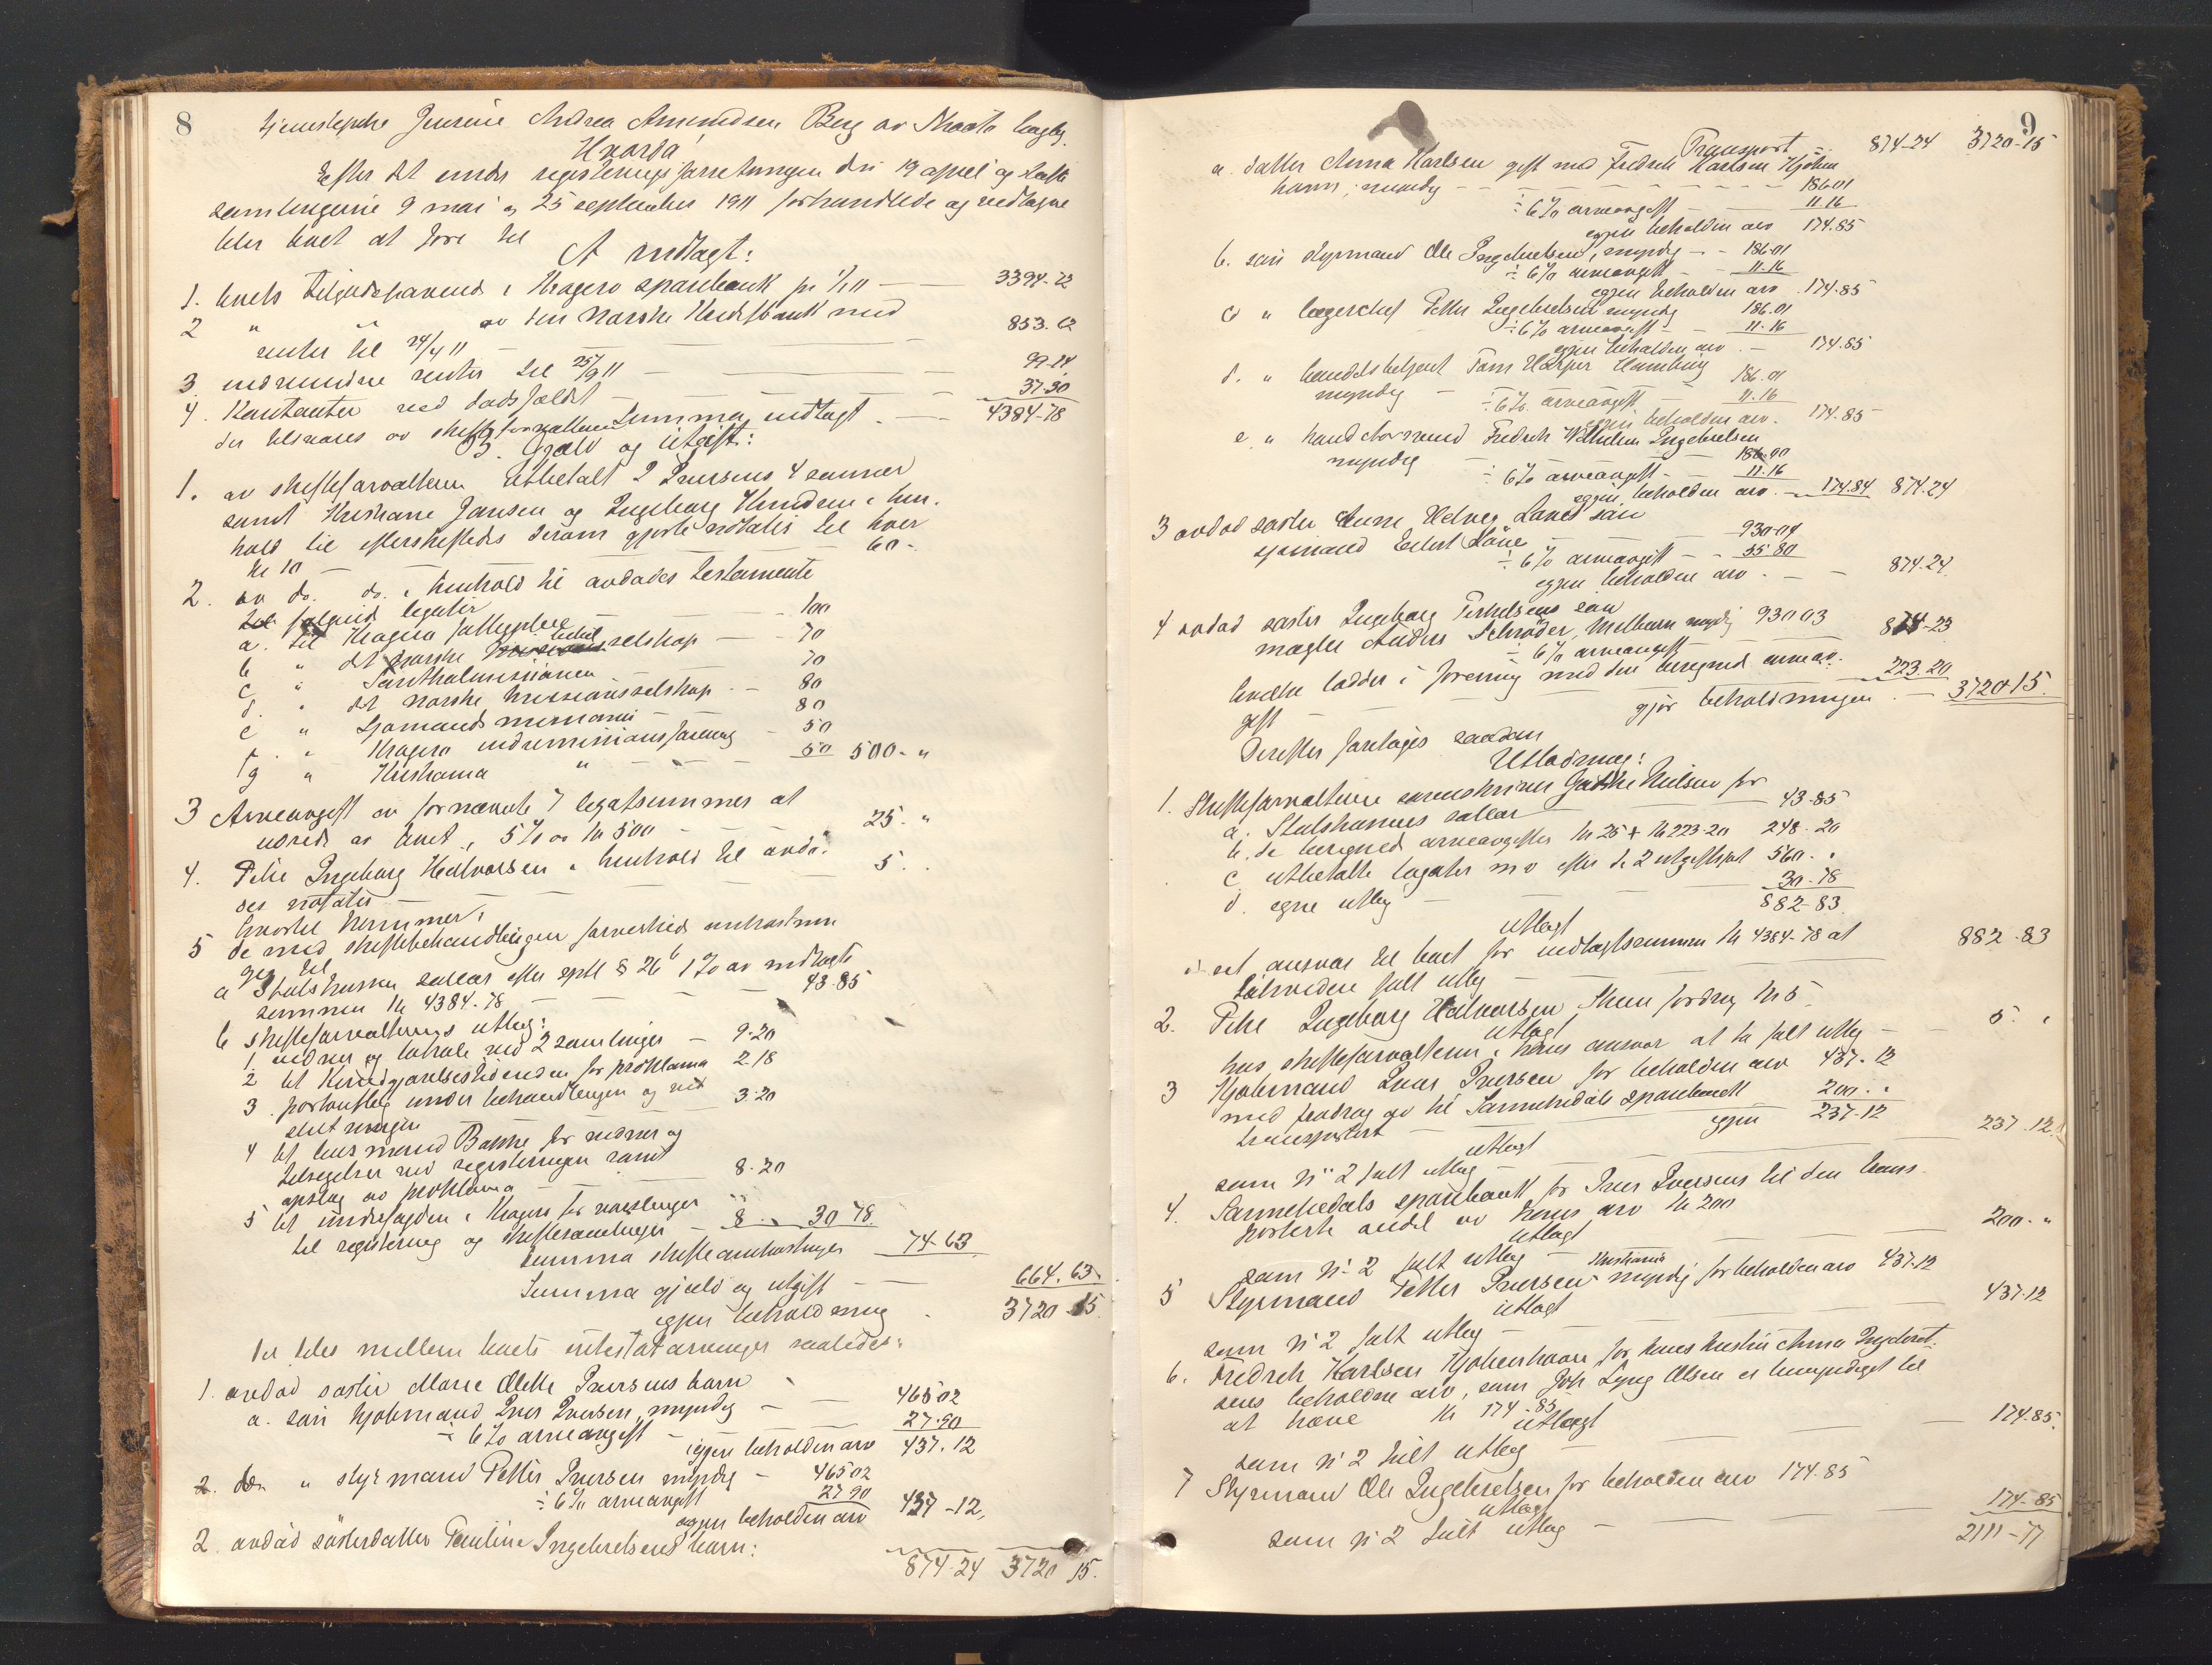 8
tjenestepike Jensine Andrea Amundsen Berg av Skaatø bogby.
Hvorda
Efter det under registreringsforretningen den 19 april og skifte
samlingerne 9 mai og 25 september 1911 forhandlede og vedtagne
blir boet at gjøre til
A Indtægt:
1. boets tilgodehavende i Kragerø sparebank pr 1/1 11 — 3394-22
2 " " av den norske Kreditbank med
renter til 24/4 11 — 853.62
3 indvundne renter til 25/9 11 — 99-14
4. Kontanter ved dødsfaldet — 37-30
der tilsvares av skifteforvalteren Summa indtægt — 4384-78
B. Gjæld og utgift:
1. av skifteforvalteren utbetalt 2 Iversens 4 sønner
samt Kristiane Jansen og Ingeborg Knudsen i hen-
hold til efterskiftedes derom gjorte notater til hver
kr 10 — 60-
2. av do. do. i henhold til avdødes testamente
til følgende legater
a. til Kragerø fattigpleie — 100
b " det norske bibelselskap — 70
c " Santhalmissionen — 70
d. " det norske missionsselskap — 80
e " Sjømandsmissionen — 80
f. " Kragerø indremissionsforening — 50
g " Kristiania " — 50 500-"
3 Arveavgift av fornævnte 7 legatsummer at
utrede av boet, 5% av kr 500 25."
4. Pike Ingeborg Halvorsen i henhold til avdø-
des notater — 5..
hvortil kommer:
5 de med skiftebehandlingen forvoldte omkostnin
ger til
a Statskassen sallær efter sptl § 26 b 1% av indtægts
summen kr 4384-78 — 43-85
b skifteforvalterens utlæg:
1 vidner og lokale ved 2 samlinger — 9-20
2 til Kundgjørelsestidenden for proklama 2-18
3. portoutlæg under behandlingen og ved
slutningen — 3-20
4 til lensmand Bakke for vidner og
tilsigelser ved registreringen samt
opslag av proklama — 8-20
5 til underfogden i Kragerø for varslinger
til registrering og skiftesamlinger — 8.. 30 78.
Summa skifteomkostninger 74-63
Summa gjæld og utgift — 664.63.
igjen beholdning 3720-15.
der deles mellem boets intestatarvinger saaledes:
1. avdød søster Marie Olette Iversens barn
a. søn kjøbmand Iver Iversen, myndig — 465 02
÷ 6% arveavgift — 27-90
igjen beholden arv 437.12
2. b. " styrmand Petter Iversen myndig — 465 02
÷ 6% arveavgift 27 90
igjen beholden arv 437-12,
2. avdød søsterdatter Pauline Ingebretsens barn:
874-24 3720 15.
9
Transport — 874-24 3720-15
a. datter Anna Karlsen gift med Fredrik Karlsen Kjøben
havn, myndig — 186 01
÷ 6% arveavgift — 11.16
igjen beholden arv 174.85
b. søn styrmand Ole Ingebretsen, myndig — 186.01
÷ 6% arveavgift — 11.16
igjen beholden arv 174.85
c " lagerchef Petter Ingebretsen myndig 186.01
÷ 6% arveavgift — 11.16
igjen beholden arv — 174.85
d. " handelsbetjent Tom Harper Hamburg
myndig — 186.01
÷ 6% arveavgift — 11.16
igjen beholden arv. 174.85
e. " Fredrik Wilhelm Ingebretsen
myndig — 186.00
÷ 6% arveavgift — 11.16
igjen beholden arv. — 174.84 874.24
3 avdød søster Anne Helvig Lønes søn
sjømand Eilert Løne — 930-04
÷ 6% arveavgift — 55.80
igjen beholden arv. — 874.24.
4 avdød søster Ingeborg Terkelsens søn
mægler Anders Schrøder, myndig 930 03
÷ 6% arveavgift — 874-23
hvilke lodder i forening med den beregnede arveav-
gift — 223.20
gjør beholdningen — 3720 15.
Derefter foretages saadan
Utlodning:
1. Skifteforvalteren sorenskriver Nielsen for
a. Statskassens sallær 43-85
b. de beregnede arveavgifter kr 25 + kr 223-20 248.20
c utbetalte legater m v efter de 2 utgiftspost 560..
d. egne utlæg — 30-78
882-83.
utlagt
i sit ansvar til boet for indtægtssummen kr 4384-78 at
tilsvidere fuldt utlæg — 882-83
2. Pike Ingeborg Halvorsen Skien fordring kr 5.
utlagt
hos skifteforvalteren i hans ansvar at ta fult utlæg — 5..
3 Kjøbmand Iver Iversen for beholden arv 437.12
med fradrag av til Sannikedals sparebank
transportert — 200..
igjen 237-12
utlagt
som nr 2 fult utlæg — 237.12.
4. Sannikedals sparebank for Iver Iversens til den trans-
porterte andel av hans arv kr 200
utlagt
som nr 2 fult utlæg — 200.."
5 Styrmand Petter Iversen Kristiania myndig for beholden arv 437.12
utlagt
som nr 2 fult utlæg — 437.12
6. Fredrik Karlsen Kjøbenhavn for hans hustru Anna Ingebret-
sens beholdne arv, som Joh Lyng Olsen er bemyndiget til
at hæve kr 174.85
utlagt
som nr 2 fult utlæg — 174.85.
7 Styrmand Ole Ingebretsen for beholden arv 174.85
utlagt
som nr 2 fult utlæg — 174-85
2111-77